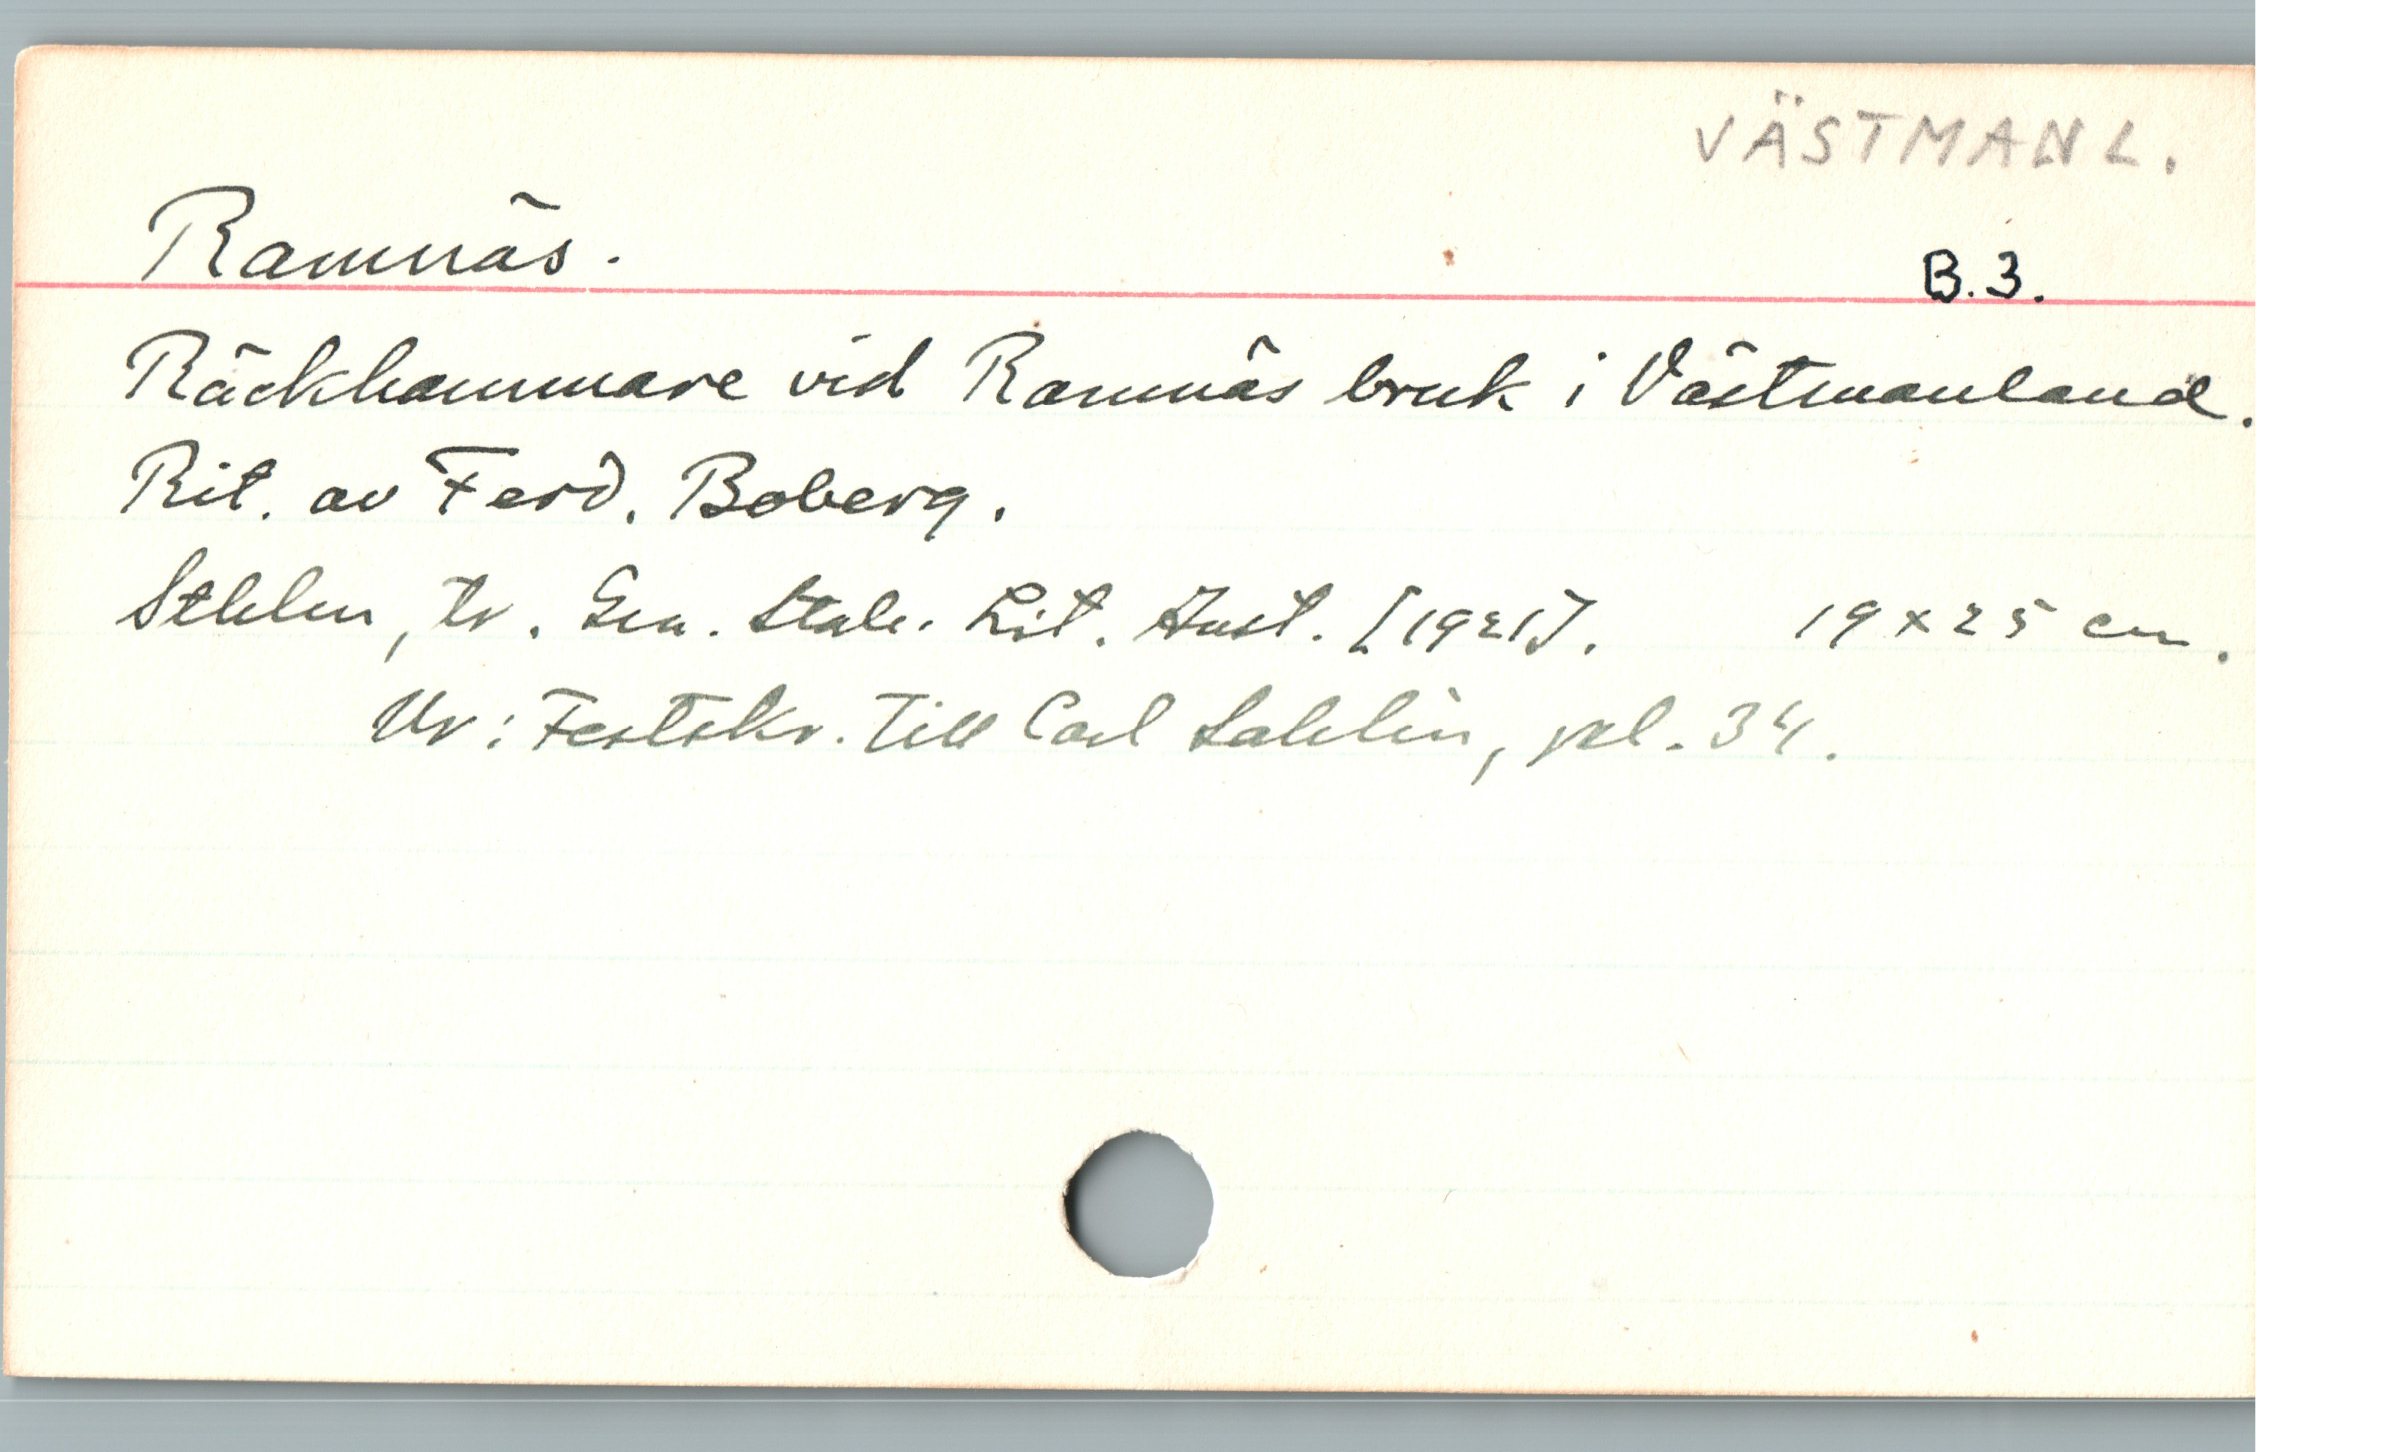 VÄSTMANL.
Ramnäs.
B.3.
Räckhammare vid Ramnäs bruk i Västmanland.
Rit. av Ferd. Boberg.
Sthlm, tr. Gen. Stab. Lit. Anst. [1921]. 19 x 25 cm.
Ur: Festskr. till Carl Sahlin, pl. 34.